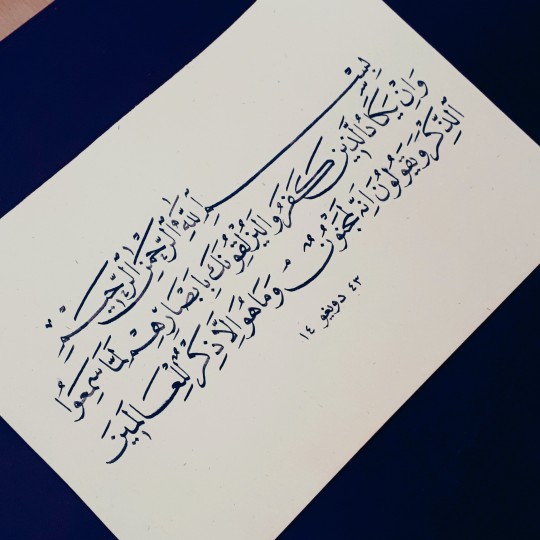 بِسْمِ اللّٰهِ الرَّحْمٰنِ الرَّحِيمِ
وَاِنْ يَكَادُ الَّذِينَ كَفَرُوا لَيُزْلِقُونَكَ بِاَبْصَارِهِمْ لَمَّا سَمِعُوا
الذِّكْرَ وَيَقُولُونَ اِنَّهُ لَمَجْنُونٌ وَمَا هُوَ اِلَّا ذِكْرٌ لِلْعَالَمِينَ
٤٣ دويغو ١٤